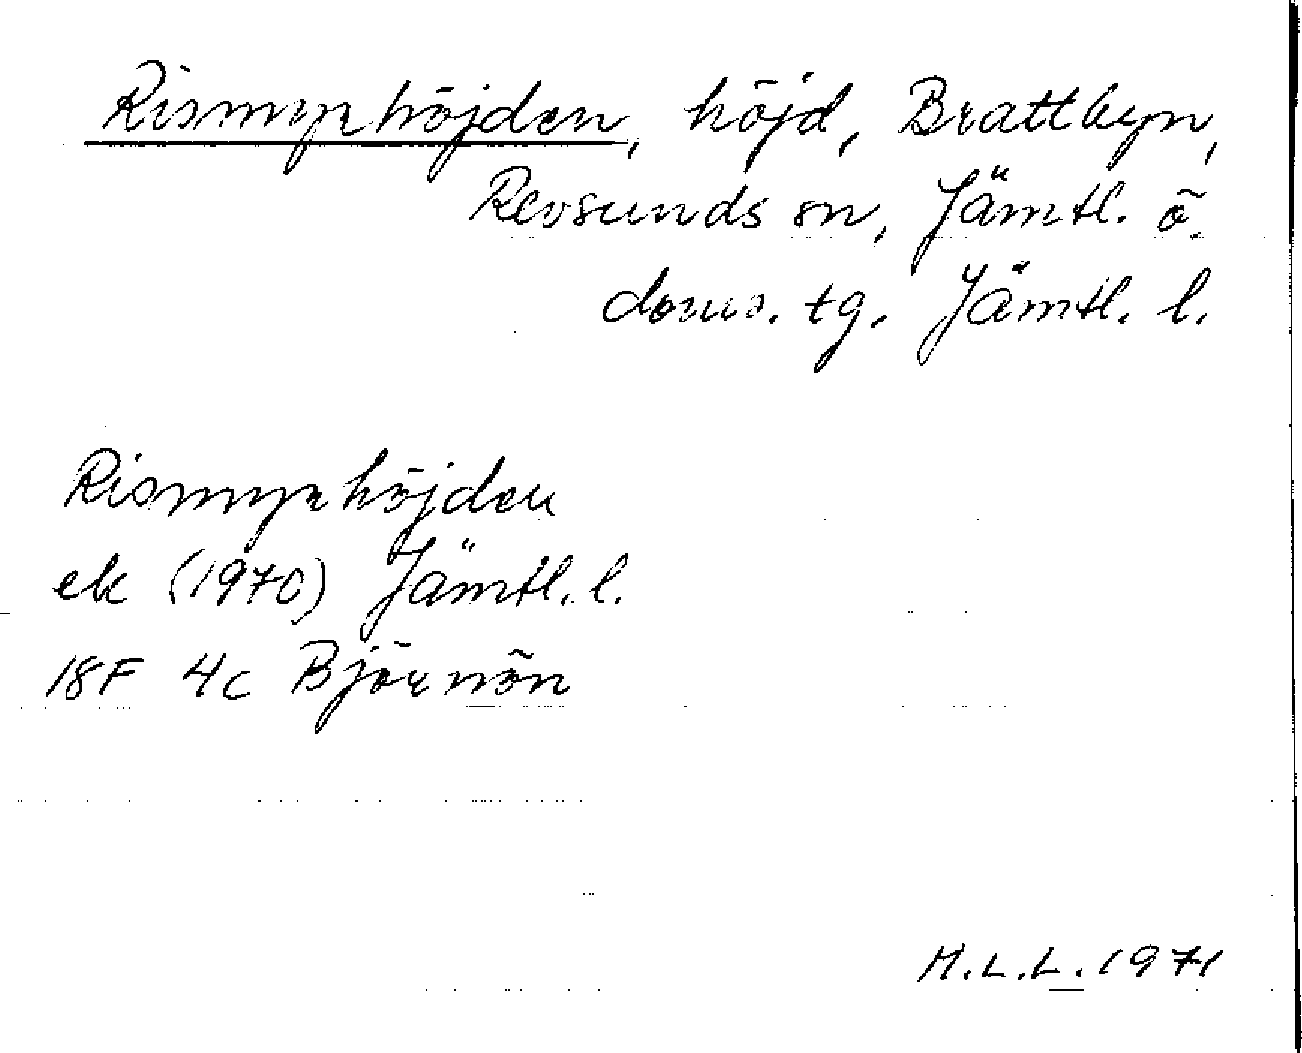 Rismyrhöjden, höjd, Brattbyn,
Revsunds sn, Jämtl. ö.
doms. tg. Jämtl. l.
Rismyrhöjden
ek (1970) Jämtl. l.
18F 4c Björnön
H.L.L. 1971